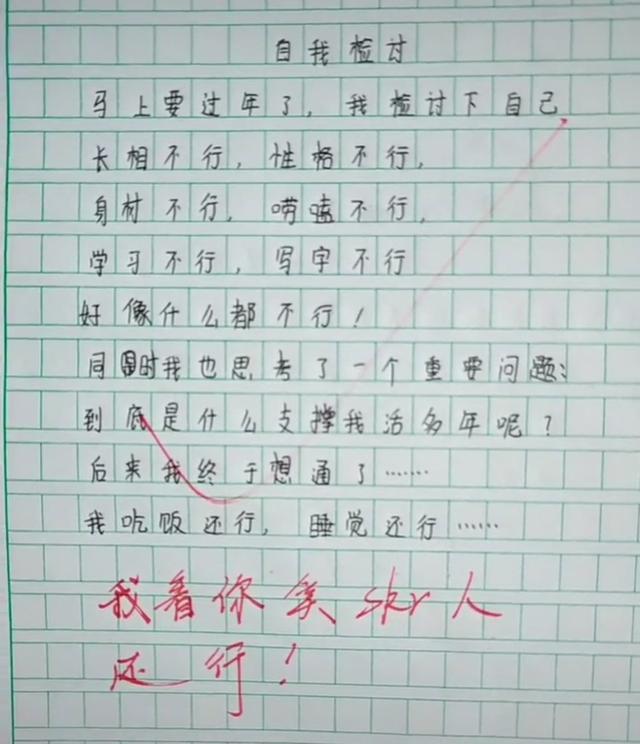 自我检讨
马上要过年了，我检讨下自己
长相不行，性格不行，
身材不行，唠嗑不行，
学习不行，写字不行
好像什么都不行！
同时我也思考了一个重要问题：
到底是什么支撑我活多年呢？
后来我终于想通了……
我吃饭还行，睡觉还行……
我看你笑skr人
还行！